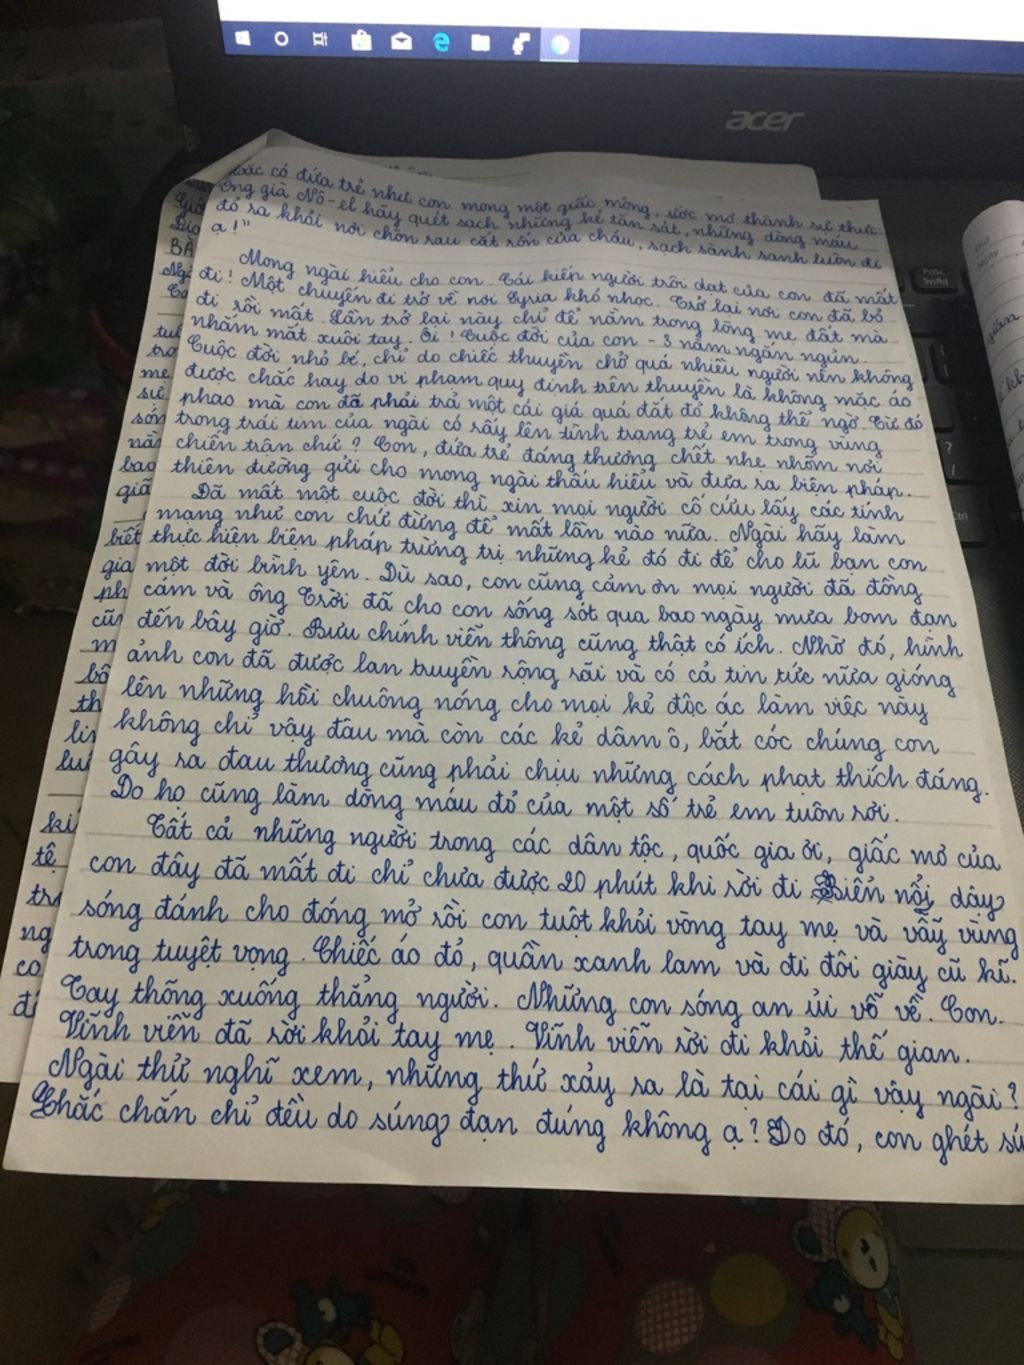 acer
PrtSc
SysRq
hoặc có đứa trẻ như con mong một giấc mộng, ước mơ thành sự thực
ông già Nô-el hãy quét sạch những kẻ tàn sát, những dòng máu
đỏ ra khỏi nơi chôn rau cắt rốn của cháu, sạch sành sanh luôn đi
ạ!"
Mong ngài hiểu cho con. Cái kiếp người trôi dạt của con đã mất
đi! Một chuyến đi trở về nơi Syria khó nhọc. Trở lại nơi con đã bỏ
đi rồi mất. Lần trở lại này chỉ để nằm trong lòng mẹ đất mà
nhắm mắt xuôi tay. Ôi! Cuộc đời của con - 3 năm ngắn ngủn.
Cuộc đời nhỏ bé, chỉ do chiếc thuyền chở quá nhiều người nên không
được chắc hay do vi phạm quy định trên thuyền là không mặc áo
phao mà con đã phải trả một cái giá quá đắt đỏ không thể ngờ. Từ đó
trong trái tim của ngài có rấy lên tình trạng trẻ em trong vùng
chiến trận chứ? Con, đứa trẻ đáng thương chết nhẹ nhõm nơi
thiên đường gửi cho mong ngài thấu hiểu và đưa ra biện pháp.
Đã mất một cuộc đời thì xin mọi người cố cứu lấy các tính
mạng như con chứ đừng để mất lần nào nữa. Ngài hãy làm
thực hiện biện pháp trừng trị những kẻ đó đi để cho lũ bạn con
một đời bình yên. Dù sao, con cũng cảm ơn mọi người đã đồng
cảm và ông Trời đã cho con sống sót qua bao ngày mưa bom đạn
đến bây giờ. Bưu chính viễn thông cũng thật có ích. Nhờ đó, hình
ảnh con đã được lan truyền rộng rãi và có cả tin tức nữa gióng
lên những hồi chuông nóng cho mọi kẻ độc ác làm việc này
không chỉ vậy đâu mà còn các kẻ dâm ô, bắt cóc chúng con
gây ra đau thương cũng phải chịu những cách phạt thích đáng.
Do họ cũng làm dòng máu đỏ của một số trẻ em tuôn rơi.
Tất cả những người trong các dân tộc, quốc gia ơi, giấc mơ của
con đây đã mất đi chỉ chưa được 20 phút khi rời đi Biển nổi dậy
sóng đánh cho đóng mở rồi con tuột khỏi vòng tay mẹ và vẫy vùng
trong tuyệt vọng. Chiếc áo đỏ, quần xanh lam và đi đôi giày cũ kĩ.
Tay thõng xuống thẳng người. Những con sóng an ủi vỗ về. Con.
Vĩnh viễn đã rời khỏi tay mẹ. Vĩnh viễn rời đi khỏi thế gian.
Ngài thử nghĩ xem, những thứ xảy ra là tại cái gì vậy ngài?
Chắc chắn chỉ đều do súng đạn đúng không ạ? Do đó, con ghét sú